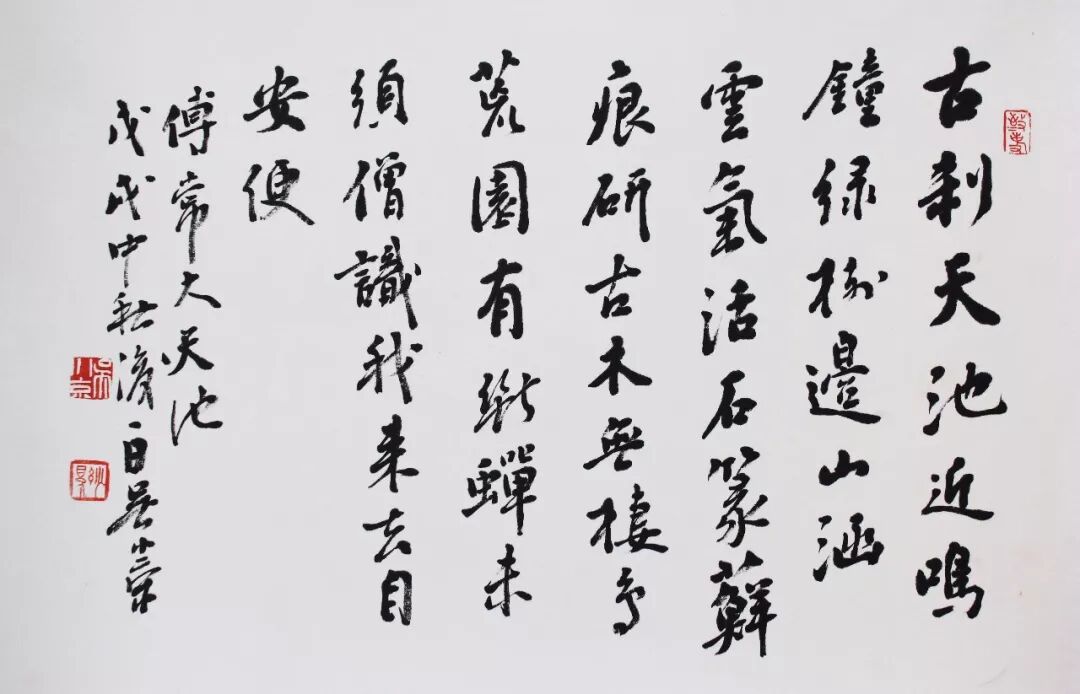 古刹天池近鳴
鐘绿樹邊山涵
雲氣活石篆蘚
痕研古木無棲鳥
荒園有斷蟬未
須僧識我来去自
安便
傅常大天池
戊戌中秋後一日吴